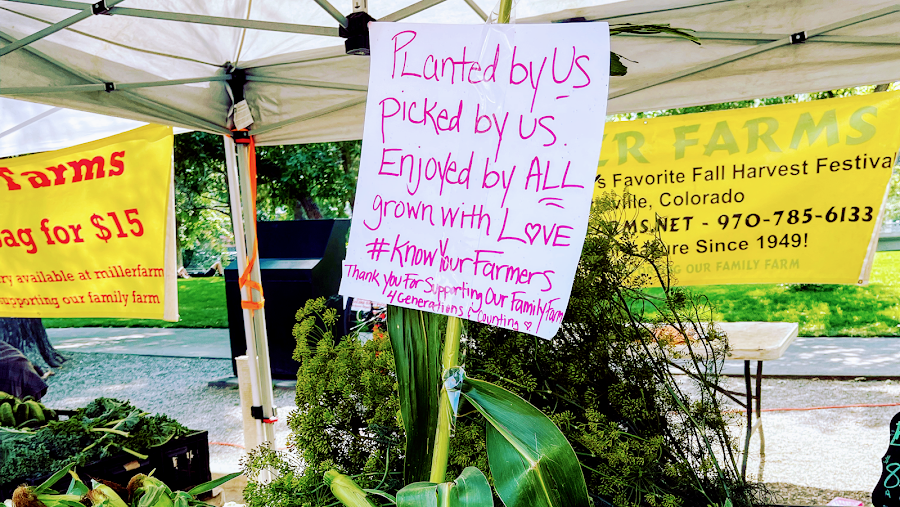 Planted by Us
picked by us.
Enjoyed by ALL
grown with LOVE
#KnowYourFarmers
Thank you For Supporting Our Family Farm
4 Generations & Counting
Farms
bag for $15
ry available at millerfarm
supporting our family farm
ER FARMS
's Favorite Fall Harvest Festiva
ville, Colorado
RMS.NET - 970-785-6133
ure Since 1949!
NG OUR FAMILY FARM